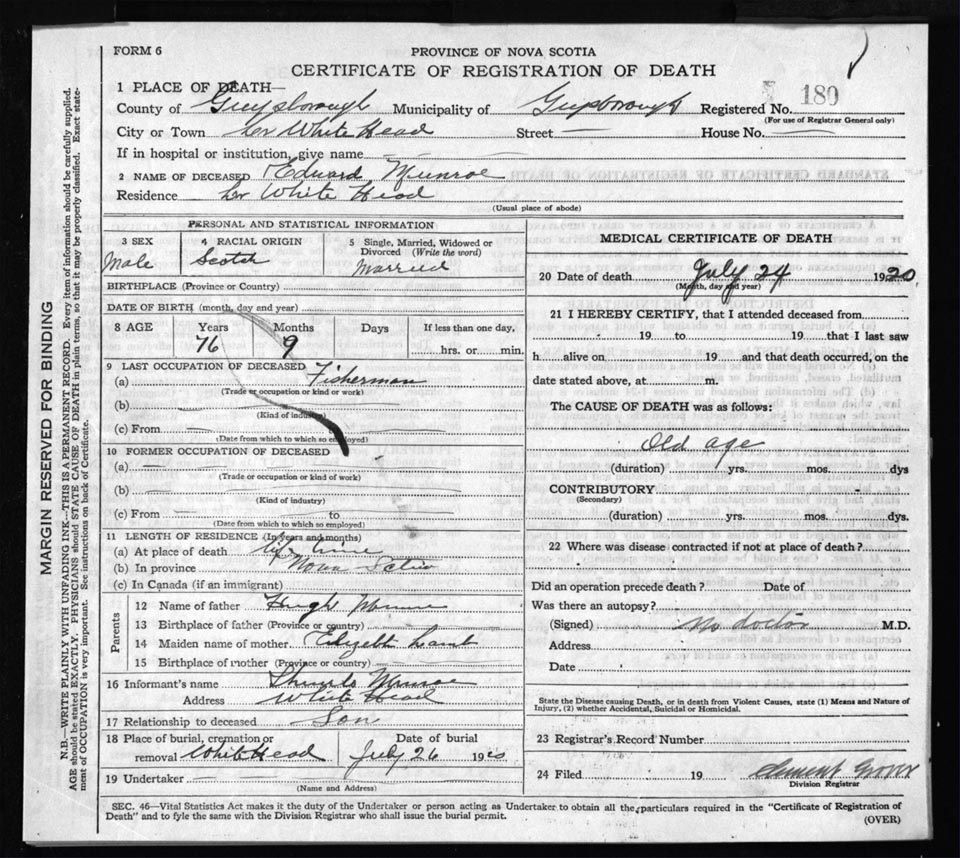 FORM 6
PROVINCE OF NOVA SCOTIA
CERTIFICATE OF REGISTRATION OF DEATH
1 PLACE OF DEATH—
County of Guysborough Municipality of Guysborough Registered No. 180
(For use of Registrar General only)
City or Town Lr White Head Street — House No. —
If in hospital or institution, give name
2 NAME OF DECEASED Edward Munroe
Residence Lr White Head
(Usual place of abode)
PERSONAL AND STATISTICAL INFORMATION
3 SEX Male
4 RACIAL ORIGIN Scotch
5 Single, Married, Widowed or Divorced (Write the word) Married
BIRTHPLACE (Province or Country)
DATE OF BIRTH (month, day and year)
8 AGE Years Months Days If less than one day,
76 9 hrs. or min.
9 LAST OCCUPATION OF DECEASED
(a) Fisherman
(Trade or occupation or kind or work)
(b)
(Kind of industry)
(c) From
(Date from which to which so employed)
10 FORMER OCCUPATION OF DECEASED
(a) —
(Trade or occupation or kind of work)
(b)
(Kind of industry)
(c) From to
(Date from which to which so employed)
11 LENGTH OF RESIDENCE (In years and months)
(a) At place of death Life time
(b) In province Nova Scotia
(c) In Canada (if an immigrant)
Parents
12 Name of father Hugh Munroe
13 Birthplace of father (Province or country)
14 Maiden name of mother Elizabeth Lamb
15 Birthplace of mother (Province or country)
16 Informant's name Munroe
Address White Head
17 Relationship to deceased Son
18 Place of burial, cremation or Date of burial
removal White Head July 26 1920
19 Undertaker
(Name and Address)
MEDICAL CERTIFICATE OF DEATH
20 Date of death July 24 1920
(Month, day and year)
21 I HEREBY CERTIFY, that I attended deceased from
19 to 19 that I last saw
h alive on 19 and that death occurred, on the
date stated above, at m.
The CAUSE OF DEATH was as follows:
Old age
(duration) yrs. mos. dys
CONTRIBUTORY
(Secondary)
(duration) yrs. mos. dys.
22 Where was disease contracted if not at place of death?
Did an operation precede death? Date of
Was there an autopsy?
(Signed) No doctor M.D.
Address
Date
State the Disease causing Death, or in death from Violent Causes, state (1) Means and Nature of
Injury, (2) whether Accidental, Suicidal or Homicidal.
23 Registrar's Record Number
24 Filed 19 Clement
Division Registrar
SEC. 46—Vital Statistics Act makes it the duty of the Undertaker or person acting as Undertaker to obtain all the particulars required in the "Certificate of Registration of
Death" and to fyle the same with the Division Registrar who shall issue the burial permit.
(OVER)
MARGIN RESERVED FOR BINDING
N.B.—WRITE PLAINLY WITH UNFADING INK—THIS IS A PERMANENT RECORD. Every item of information should be carefully supplied.
AGE should be stated EXACTLY. PHYSICIANS should STATE CAUSE OF DEATH in plain terms, so that it may be properly classified. Exact state-
ment of OCCUPATION is very important. See instructions on back of Certificate.